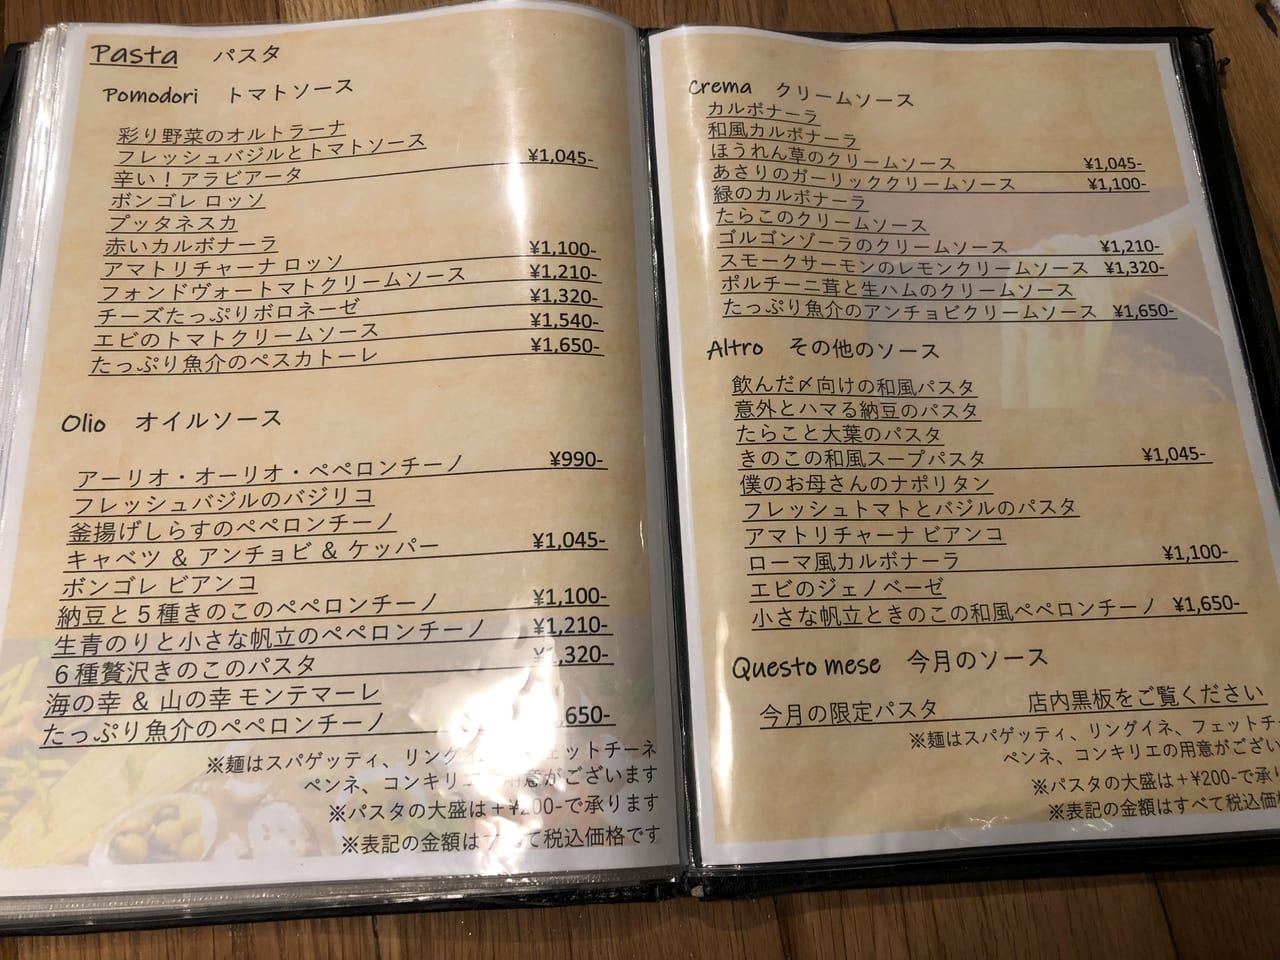 Pasta パスタ
Pomodori トマトソース
彩り野菜のオルトラーナ
フレッシュバジルとトマトソース
辛い！アラビアータ ¥1,045-
ボンゴレ ロッソ
プッタネスカ
赤いカルボナーラ
アマトリチャーナ ロッソ ¥1,100-
フォンドヴォートマトクリームソース ¥1,210-
チーズたっぷりボロネーゼ ¥1,320-
エビのトマトクリームソース ¥1,540-
たっぷり魚介のペスカトーレ ¥1,650-
Olio オイルソース
アーリオ・オーリオ・ペペロンチーノ ¥990-
フレッシュバジルのバジリコ
釜揚げしらすのペペロンチーノ
キャベツ & アンチョビ & ケッパー ¥1,045-
ボンゴレ ビアンコ
納豆と５種きのこのペペロンチーノ ¥1,100-
生青のりと小さな帆立のペペロンチーノ ¥1,210-
６種贅沢きのこのパスタ ¥1,320-
海の幸 & 山の幸 モンテマーレ
たっぷり魚介のペペロンチーノ 650-
※麺はスパゲッティ、リング フェットチーネ
ペンネ、コンキリエ 用意がございます
※パスタの大盛は＋¥200-で承ります
※表記の金額はすべて税込価格です
Crema クリームソース
カルボナーラ
和風カルボナーラ
ほうれん草のクリームソース ¥1,045-
あさりのガーリッククリームソース ¥1,100-
緑のカルボナーラ
たらこのクリームソース
ゴルゴンゾーラのクリームソース ¥1,210-
スモークサーモンのレモンクリームソース ¥1,320-
ポルチーニ茸と生ハムのクリームソース
たっぷり魚介のアンチョビクリームソース ¥1,650-
Altro その他のソース
飲んだ〆向けの和風パスタ
意外とハマる納豆のパスタ
たらこと大葉のパスタ
きのこの和風スープパスタ ¥1,045-
僕のお母さんのナポリタン
フレッシュトマトとバジルのパスタ
アマトリチャーナ ビアンコ
ローマ風カルボナーラ ¥1,100-
エビのジェノベーゼ
小さな帆立ときのこの和風ペペロンチーノ ¥1,650-
Questo mese 今月のソース
今月の限定パスタ 店内黒板をご覧ください
※麺はスパゲッティ、リングイネ、フェットチ
ペンネ、コンキリエの用意がござい
※パスタの大盛は＋¥200-で承り
※表記の金額はすべて税込価格